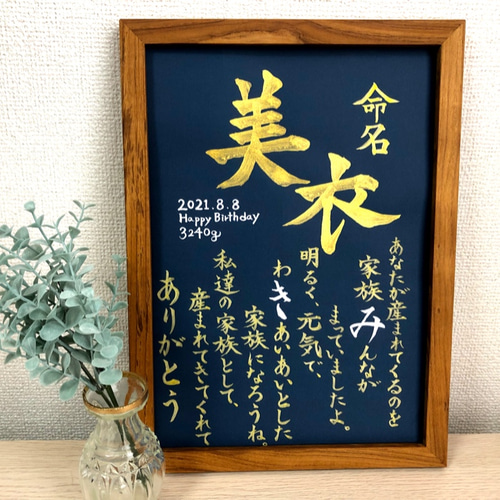 命名
美衣
2021.8.8
Happy Birthday
3240g
あなたが産まれてくるのを
家族みんなが
まっていましたよ。
明るく、元気で、
わきあいあいとした
家族になろうね。
私達の家族として、
産まれてきてくれて
ありがとう